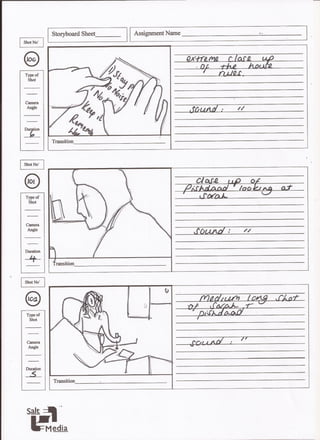 Storyboard Sheet
Assignment Name
Shot No'
100
Type of
Shot
Camera
Angle
Duration
6
1) Stay
No Noise
No
Keep it
Rememb
Transition
extreme close up
of the house
rules.
sound: "
Shot No'
101
Type of
Shot
Camera
Angle
Duration
4
Transition
close up of
Pishdaad looking at
sarah
sound: "
Shot No'
102
Type of
Shot
Camera
Angle
Duration
5
Transition
medium long shot
of sarah +
pishdaad
sound: "
Salt
Media